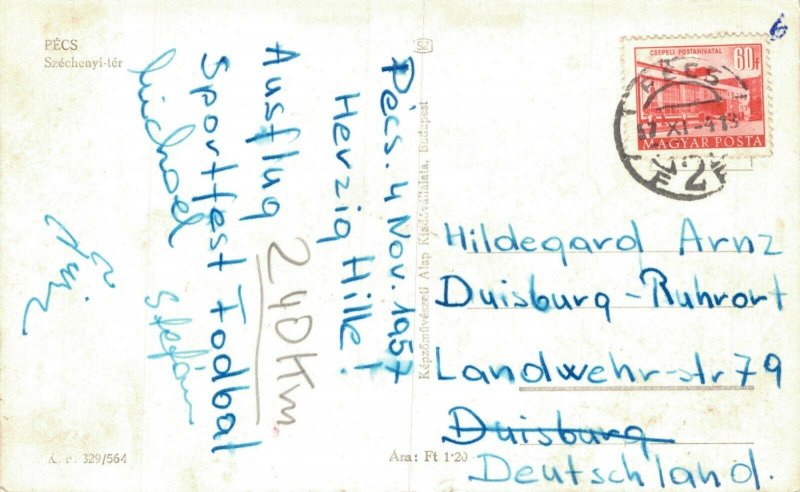 PÉCS
Széchenyi-tér
Pécs. 4 Nov. 1957
Herzig Hille!
Ausflug
240 Km
Sportfest Fodbal
Stefán
Képzőművészeti Alap Kiadóvállalata, Budapest
CSEPELI POSTAHIVATAL
60f
MAGYAR POSTA
PÉCS
57 XI -4 13
2
6
Hildegard Arnz
Duisburg-Ruhrort
Landwehr-str 79
Duisburg
Deutschland.
329/564
Ára: Ft 1·20